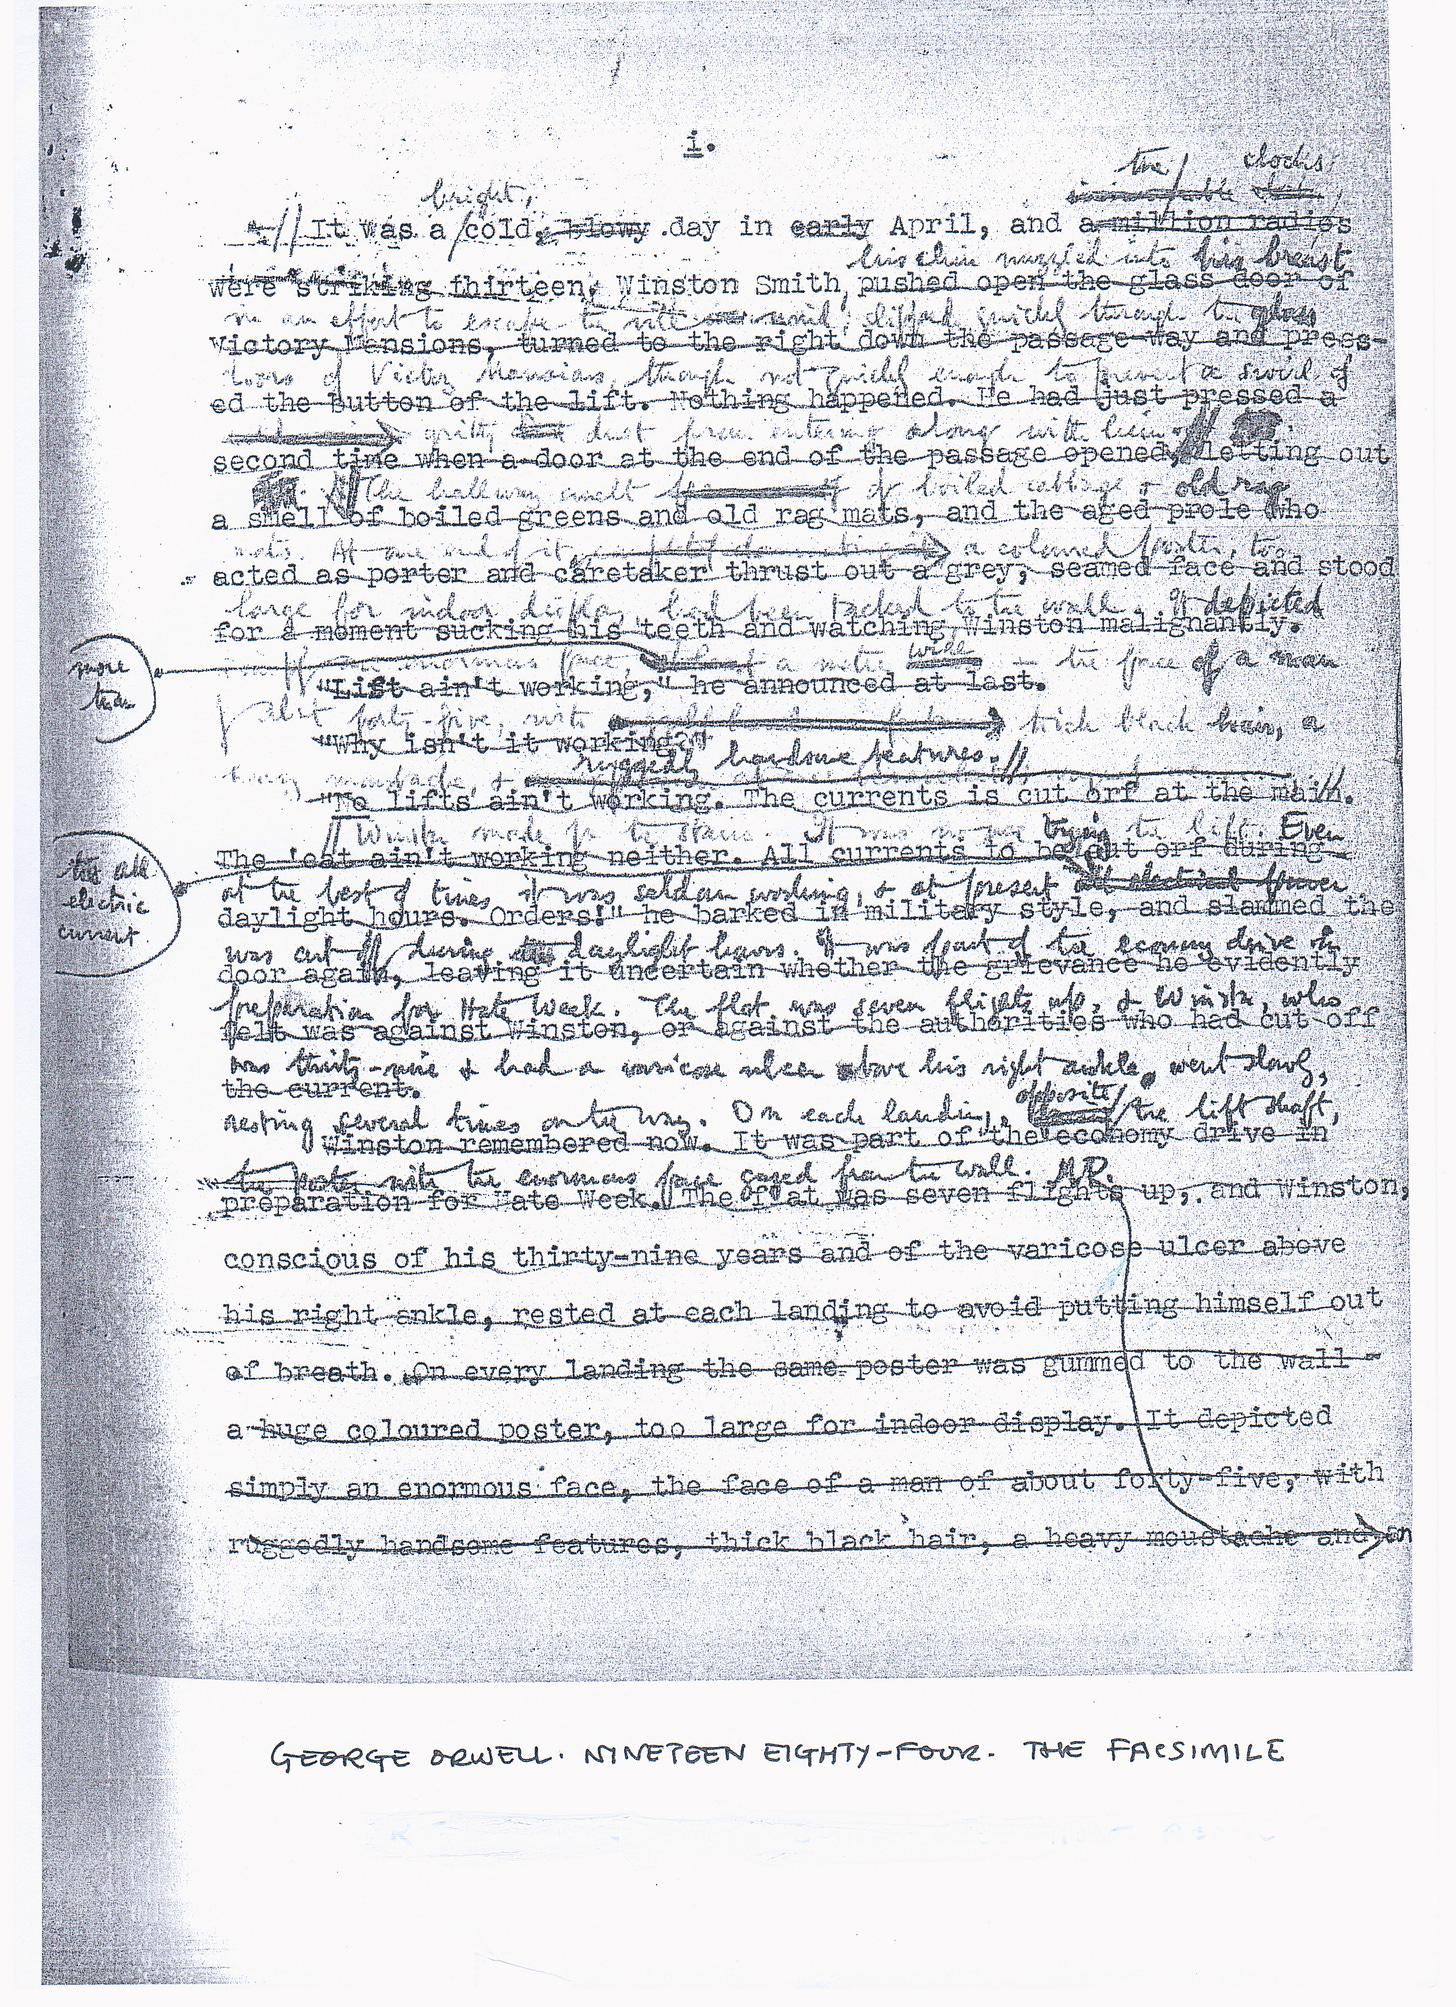 i.
the clocks
bright,
It was a cold, blowy day in early April, and a million radios
his chin nuzzled into his breast
were striking thirteen. Winston Smith pushed open the glass door of
in an effort to escape the vile wind, slipped quickly through the glass
Victory Mansions, turned to the right down the passage-way and press-
doors of Victory Mansions, though not quickly enough to prevent a swirl of
ed the button of the lift. Nothing happened. He had just pressed a
gritty dust from entering along with him.
second time when a door at the end of the passage opened, letting out
The hallway smelt of boiled cabbage & old rag
a smell of boiled greens and old rag mats, and the aged prole who
mats. At one end of it, a coloured poster, too
acted as porter and caretaker thrust out a grey, seamed face and stood
large for indoor display, had been tacked to the wall. It depicted
for a moment sucking his teeth and watching Winston malignantly.
more
than
simply an enormous face, a metre wide - the face of a man
"Lift ain't working," he announced at last.
about forty-five, with thick black hair, a
"Why isn't it working?"
ruggedly handsome features.
heavy moustache, &
"No lifts ain't working. The currents is cut orf at the main.
Winston made for the stairs. It was no use trying the lift. Even
The 'eat ain't working neither. All currents to be cut orf during
the all
electric
current
at the best of times it was seldom working, & at present all electrical power
daylight hours. Orders!" he barked in military style, and slammed the
was cut off during daylight hours. It was part of the economy drive in
door again, leaving it uncertain whether the grievance he evidently
preparation for Hate Week. The flat was seven flights up, & Winston, who
felt was against Winston, or against the authorities who had cut off
was thirty-nine & had a varicose ulcer above his right ankle, went slowly,
the current.
opposite
resting several times on the way. On each landing, the lift shaft,
Winston remembered now. It was part of the economy drive in
the poster with the enormous face gazed from the wall.
preparation for Hate Week. The flat was seven flights up, and Winston,
conscious of his thirty-nine years and of the varicose ulcer above
his right ankle, rested at each landing to avoid putting himself out
of breath. On every landing the same poster was gummed to the wall -
a huge coloured poster, too large for indoor display. It depicted
simply an enormous face, the face of a man of about forty-five, with
ruggedly handsome features, thick black hair, a heavy moustache and an
GEORGE ORWELL. NINETEEN EIGHTY-FOUR. THE FACSIMILE